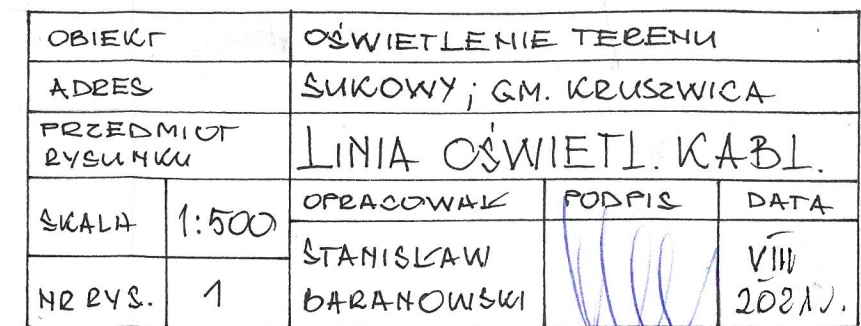 OBIEKT OŚWIETLENIE TERENU
ADRES SUKOWY; GM. KRUSZWICA
PRZEDMIOT
RYSUNKU
LINIA OŚWIETL. KABL.
SKALA 1:500
OPRACOWAŁ PODPIS DATA
STANISŁAW
BARANOWSKI
VIII
2021r.
NR RYS. 1